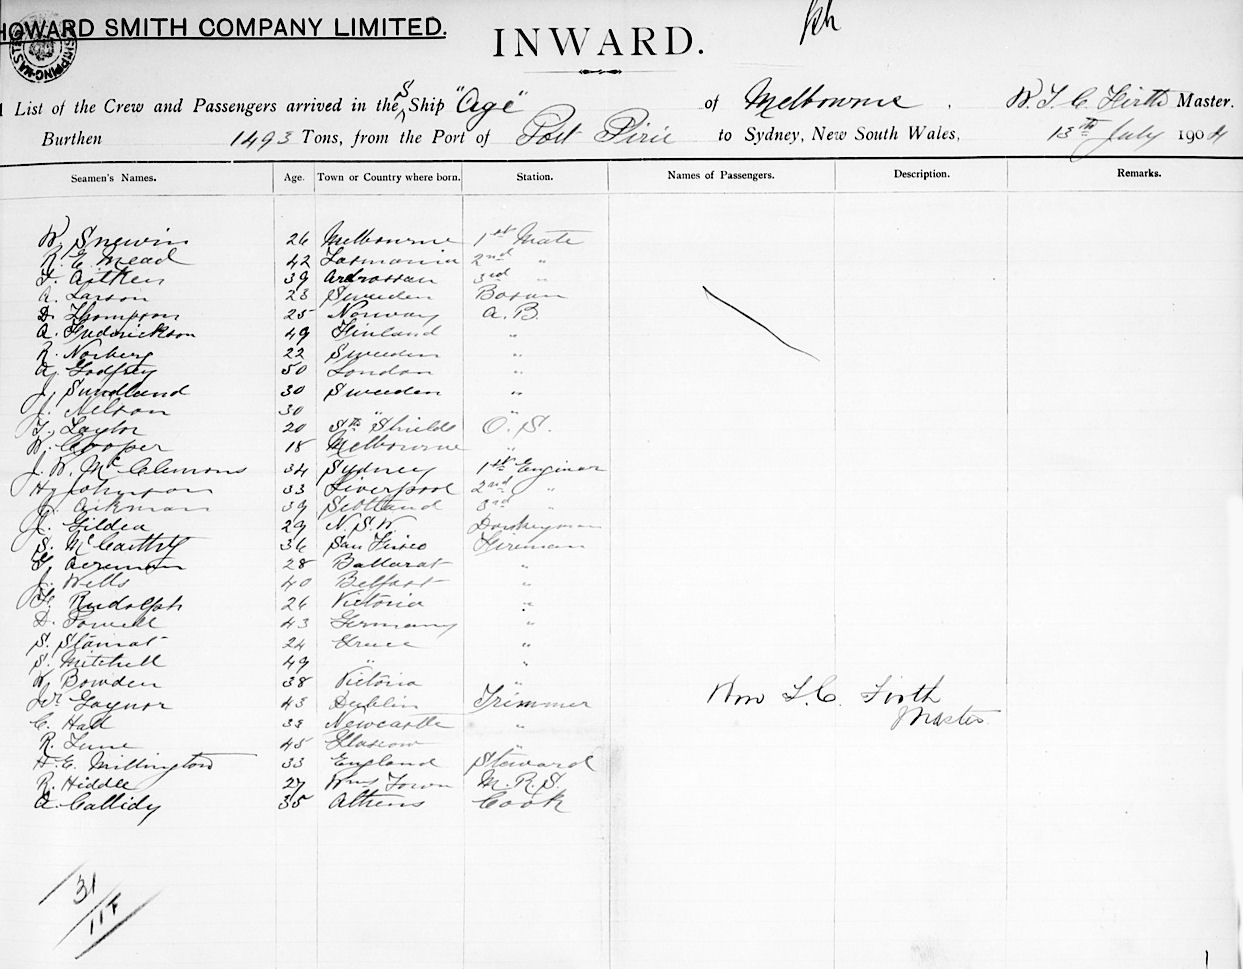 HOWARD SMITH COMPANY LIMITED.
INWARD.
List of the Crew and Passengers arrived in the S Ship "Age" of Melbourne . W. T. C. Firth Master.
Burthen 1493 Tons, from the Port of Port Pirie to Sydney, New South Wales, 13th July 1904
Seamen's Names. Age. Town or Country where born. Station. Names of Passengers. Description. Remarks.
W. Snewin 26 Melbourne 1st Mate
R. E. Mead 42 Tasmania 2nd "
T. Aitken 39 Ardrossan 3rd "
A. Larson 23 Sweden Bosun
D. Thompson 25 Norway A.B.
A. Frederickson 49 Finland "
R. Norberg 22 Sweden "
A. Godfrey 50 London "
J. Sundland 30 Sweden "
J. Nelson 30 " "
T. Taylor 20 Sth Shields O.S.
W. Cooper 18 Melbourne "
J. W. McClemons 34 Sydney 1st Engineer
H. Johnson 33 Liverpool 2nd "
J. Aikman 39 Scotland 3rd "
R. Gildea 29 N.S.W. Donkeyman
S. McCarthy 36 San Frisco Fireman
G. Acreman 28 Ballarat "
J. Wells 40 Belfast "
F. Rudolph 26 Victoria "
D. Powell 43 Germany "
S. Stamat 24 Greece "
S. Mitchell 49 " "
W. Bowden 38 Victoria "
Wm Gaynor 43 Dublin Trimmer
C. Hall 38 Newcastle "
R. Lune 45 Glasgow "
H. E. Millington 33 England Steward
R. Hiddle 27 Wms Town M.R.S.
A. Callidy 35 Athens Cook
Wm T. C. Firth
Master
31
117